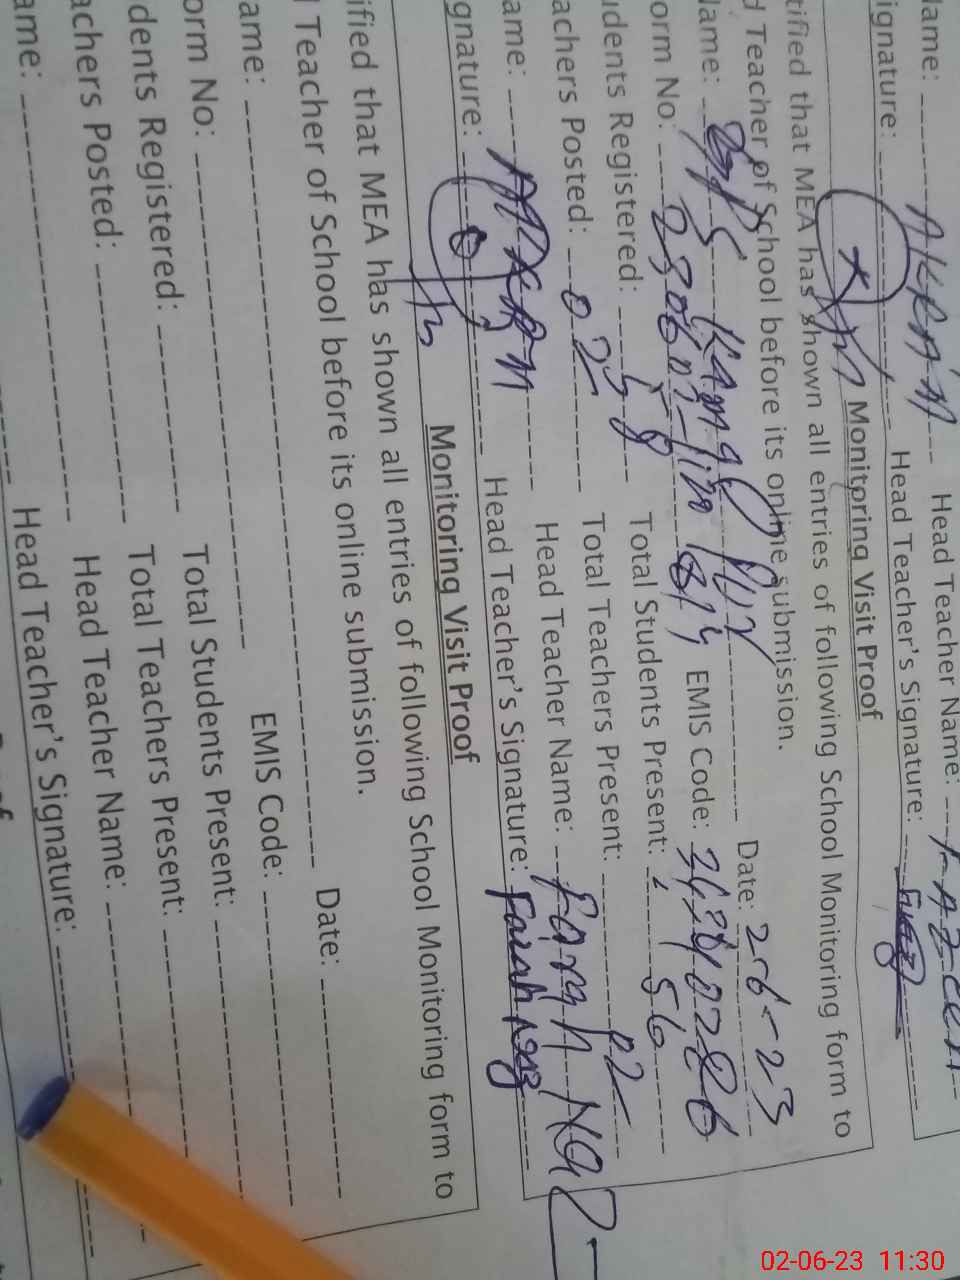 Name: AKRAM Head Teacher Name:
ignature: Head Teacher's Signature:
Monitoring Visit Proof
tified that MEA has shown all entries of following School Monitoring form to
d Teacher of School before its online submission.
Name: Date: 2-6-23
orm No: EMIS Code:
udents Registered: 58 Total Students Present: 56
achers Posted: 02 Total Teachers Present: 02
ame: AKRAM Head Teacher Name: Farah Naz
gnature: Head Teacher's Signature: Farah Naz
Monitoring Visit Proof
ified that MEA has shown all entries of following School Monitoring form to
d Teacher of School before its online submission.
ame: Date:
orm No: EMIS Code:
dents Registered: Total Students Present:
achers Posted: Total Teachers Present:
ame: Head Teacher Name:
Head Teacher's Signature:
02-06-23 11:30